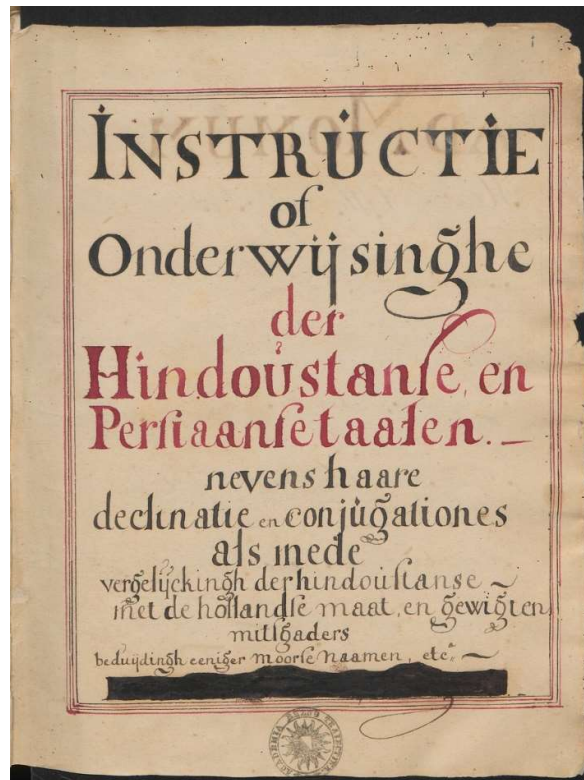 INSTRUCTIE
of
Onderwijsinghe
der
Hindoustanse, en
Persiaansetaalen.
nevens haare
declinatie en conjugationes
als mede
vergelijckingh der hindoustanse ~
met de hollandse maat, en gewigten
mitsgaders
beduijdingh eeniger moorse naamen, etc.a ~